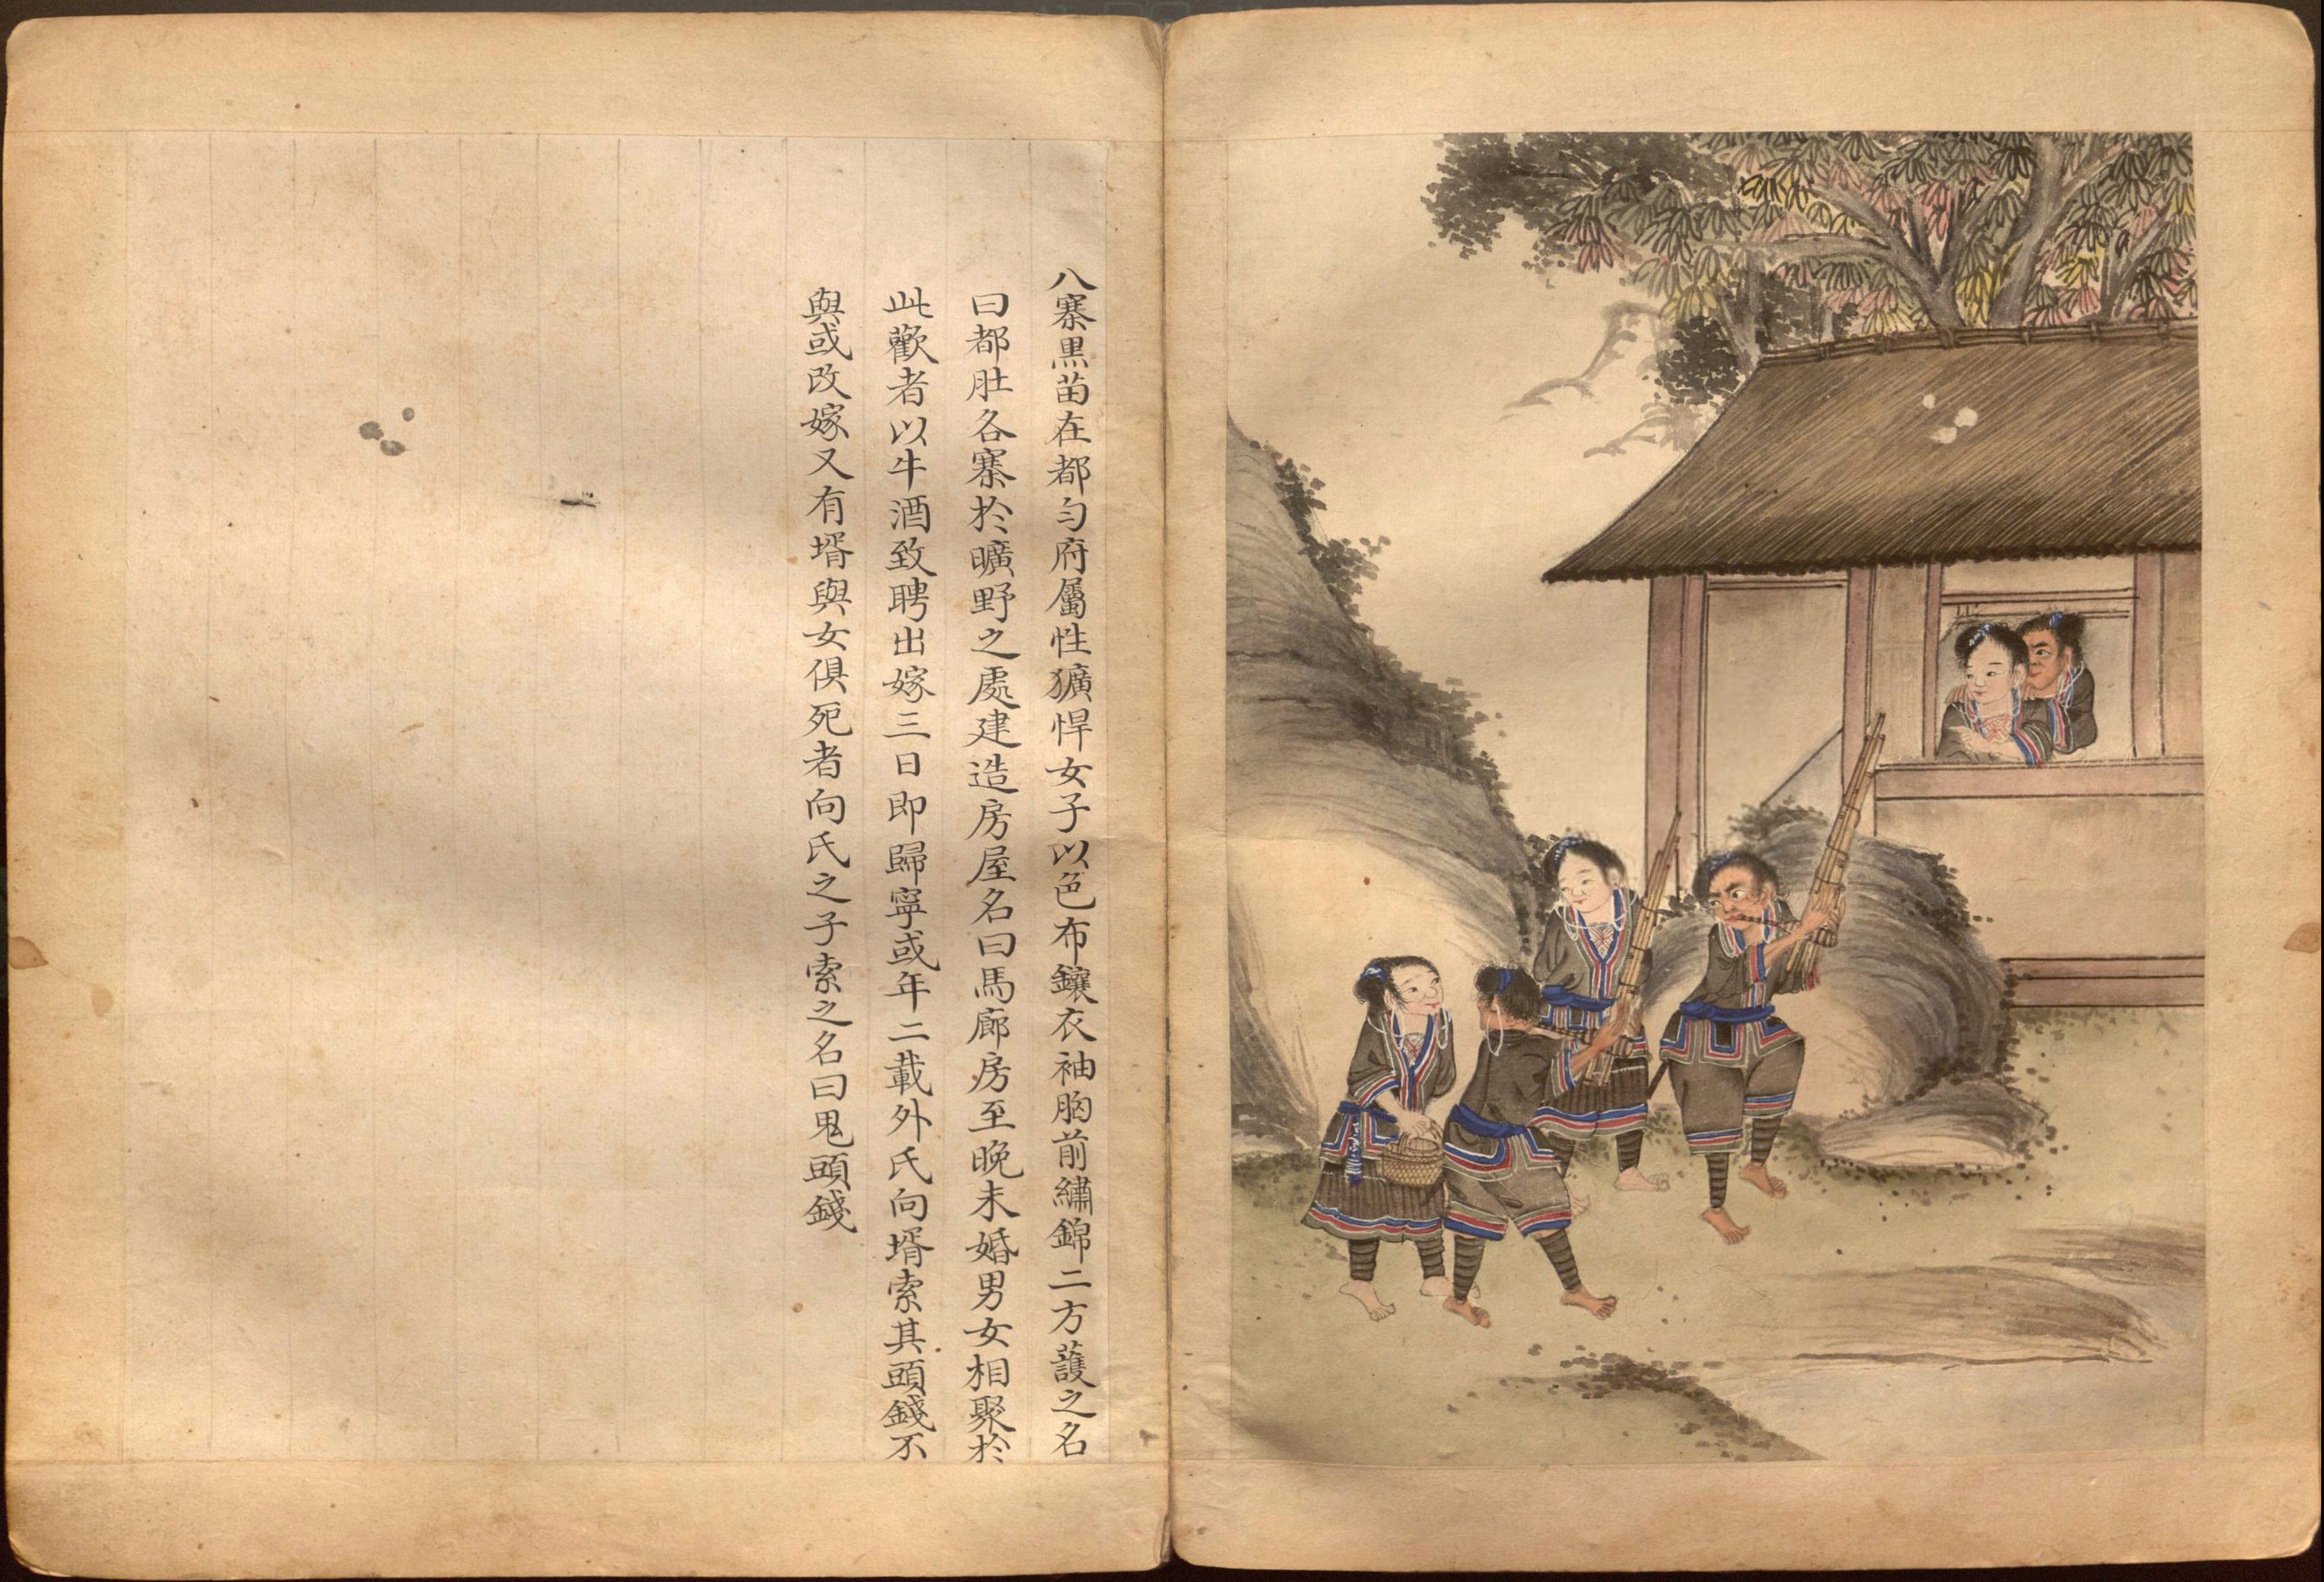 八寨黒苗在都匀府屬性獷悍女子以色布鑲衣袖胸前繡錦二方護之名
曰都肚各寨於曠野之處建造房屋名曰馬廊房至晚未婚男女相聚於
此歡者以牛酒致聘出嫁三日即歸寧或年二載外氏向壻索其頭錢不
與或改嫁又有壻與女俱死者向氏之子索之名曰鬼頭錢